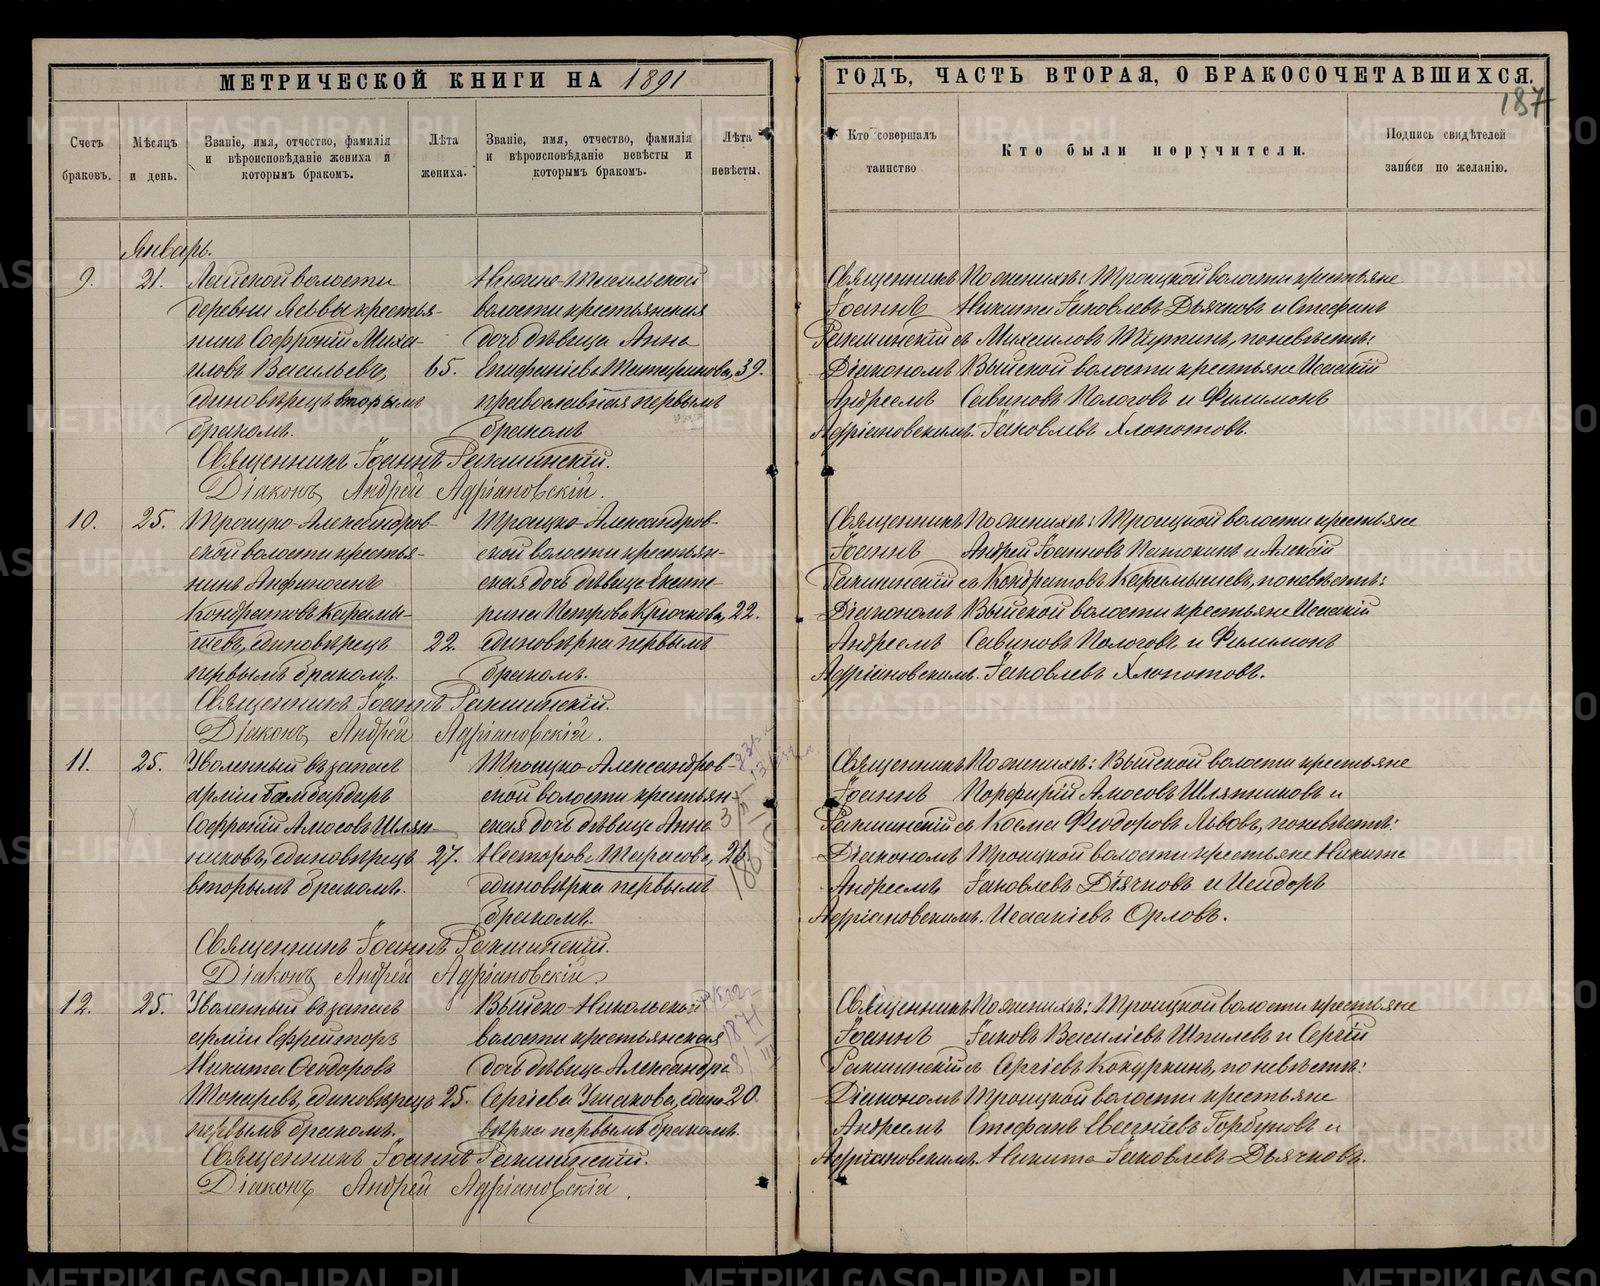 МЕТРИЧЕСКОЙ КНИГИ НА 1891
ГОДЪ, ЧАСТЬ ВТОРАЯ, О БРАКОСОЧЕТАВШИХСЯ.
187
Счетъ браковъ.
Мѣсяцъ и день.
Званіе, имя, отчество, фамилія
и вѣроисповѣданіе жениха и
которымъ бракомъ.
Лѣта жениха.
Званіе, имя, отчество, фамилія
и вѣроисповѣданіе невѣсты и
которымъ бракомъ.
Лѣта невѣсты.
Кто совершалъ таинство
Кто были поручители.
Подпись свидѣтелей
записи по желанію.
Январь.
9. 21. Лайской волости
деревни Леввы крестья-
нинъ Софроній Миха-
иловъ Васильевъ, 65.
единовѣрецъ вторымъ
бракомъ.
Нижне-Тагильской
волости крестьянская
дочь дѣвица Анна
Епифаніева 39.
православная первымъ
бракомъ
Священникъ Іоаннъ
Діаконъ Андрей Адріановскій.
Священникъ По женихѣ: Троицкой волости крестьяне
Іоаннъ Никита Іаковлевъ Дьячковъ и Стефанъ
съ Михаиловъ по невѣстѣ:
Діакономъ Выйской волости крестьяне Исаакій
Андреемъ Савиновъ Пологовъ и Филимонъ
Адріановскимъ. Іаковлевъ Хлопотовъ.
10. 25. Троицко-Александров-
ской волости крестья-
нинъ Анфиногенъ
Кондратовъ Карамы-
шевъ, единовѣрецъ 22.
первымъ бракомъ.
Троицко-Александров-
ской волости крестьян-
ская дочь дѣвица Екате-
рина Петрова Крючкова, 22.
единовѣрка первымъ
бракомъ.
Священникъ Іоаннъ
Діаконъ Андрей Адріановскій.
Священникъ По женихѣ: Троицкой волости крестьяне
Іоаннъ Андрей Іоанновъ Патокинъ и Алексій
съ Кондратовъ Карамышевъ, по невѣстѣ:
Діакономъ Выйской волости крестьяне Исаакій
Андреемъ Савиновъ Пологовъ и Филимонъ
Адріановскимъ. Іаковлевъ Хлопотовъ.
11. 25. Уволенный въ запасъ
арміи бомбардиръ
Софроній Амосовъ Шлян-
никовъ, единовѣрецъ 27.
вторымъ бракомъ.
Троицко-Александров-
ской волости крестьян-
ская дочь дѣвица Анна
Несторова Тарасова, 26.
единовѣрка первымъ
бракомъ.
Священникъ Іоаннъ
Діаконъ Андрей Адріановскій
Священникъ По женихѣ: Выйской волости крестьяне
Іоаннъ Порфирій Амосовъ Шляпниковъ и
съ Косма Феодоровъ Львовъ, по невѣстѣ:
Діакономъ Троицкой волости крестьяне Никита
Андреемъ Іаковлевъ Дьячковъ и Исидоръ
Адріановскимъ. Исаакіевъ Орловъ.
12. 25. Уволенный въ запасъ
арміи ефрейторъ
Никита Ѳеодоровъ
Токаревъ, единовѣрецъ 25.
первымъ бракомъ.
Выйско-Никольской
волости крестьянская
дочь дѣвица Александра
Сергіева Ушакова, едино- 20.
вѣрка первымъ бракомъ.
Священникъ Іоаннъ
Діаконъ Андрей Адріановскій.
Священникъ По женихѣ: Троицкой волости крестьяне
Іоаннъ Іаковъ Василіевъ Шпилевъ и Сергій
съ Сергіевъ Кокуркинъ, по невѣстѣ:
Діакономъ Троицкой волости крестьяне
Андреемъ Стефанъ Горбуновъ и
Адріановскимъ. Никита Іаковлевъ Дьячковъ.
METRIKI.GASO-URAL.RU